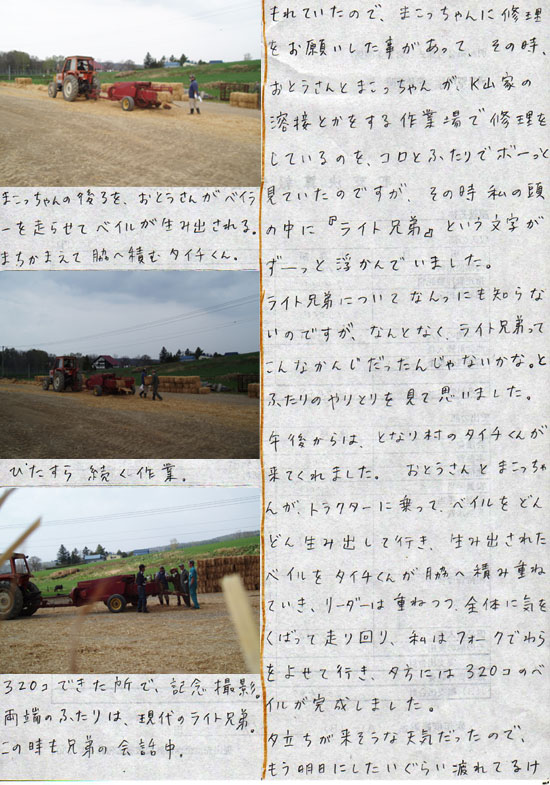 まこっちゃんの後ろを、おとうさんがベイラ
ーを走らせてベイルが生み出される。
まちかまえて脇へ積むタイチくん。
ひたすら続く作業。
320コできた所で、記念撮影。
両端のふたりは、現代のライト兄弟。
この時も兄弟の会話中。
もれていたので、まこっちゃんに修理
をお願いした事があって、その時、
おとうさんとまこっちゃんが、K山家の
溶接とかをする作業場で修理を
しているのを、コロとふたりでボーっと
見ていたのですが、その時私の頭
の中に『ライト兄弟』という文字が
ずーっと浮かんでいました。
ライト兄弟についてなんっにも知らな
いのですが、なんとなく、ライト兄弟って
こんなかんじだったんじゃないかな。と
ふたりのやりとりを見て思いました。
午後からは、となり村のタイチくんが
来てくれました。おとうさんとまこっちゃ
んが、トラクターに乗って、ベイルをどん
どん生み出して行き、生み出された
ベイルをタイチくんが脇へ積み重ね
ていき、リーダーは重ねつつ、全体に気を
くばって走り回り、私はフォークでわら
をよせて行き、夕方には320コのベ
イルが完成しました。
夕立ちが来そうな天気だったので、
もう明日にしたいぐらい疲れてるけ